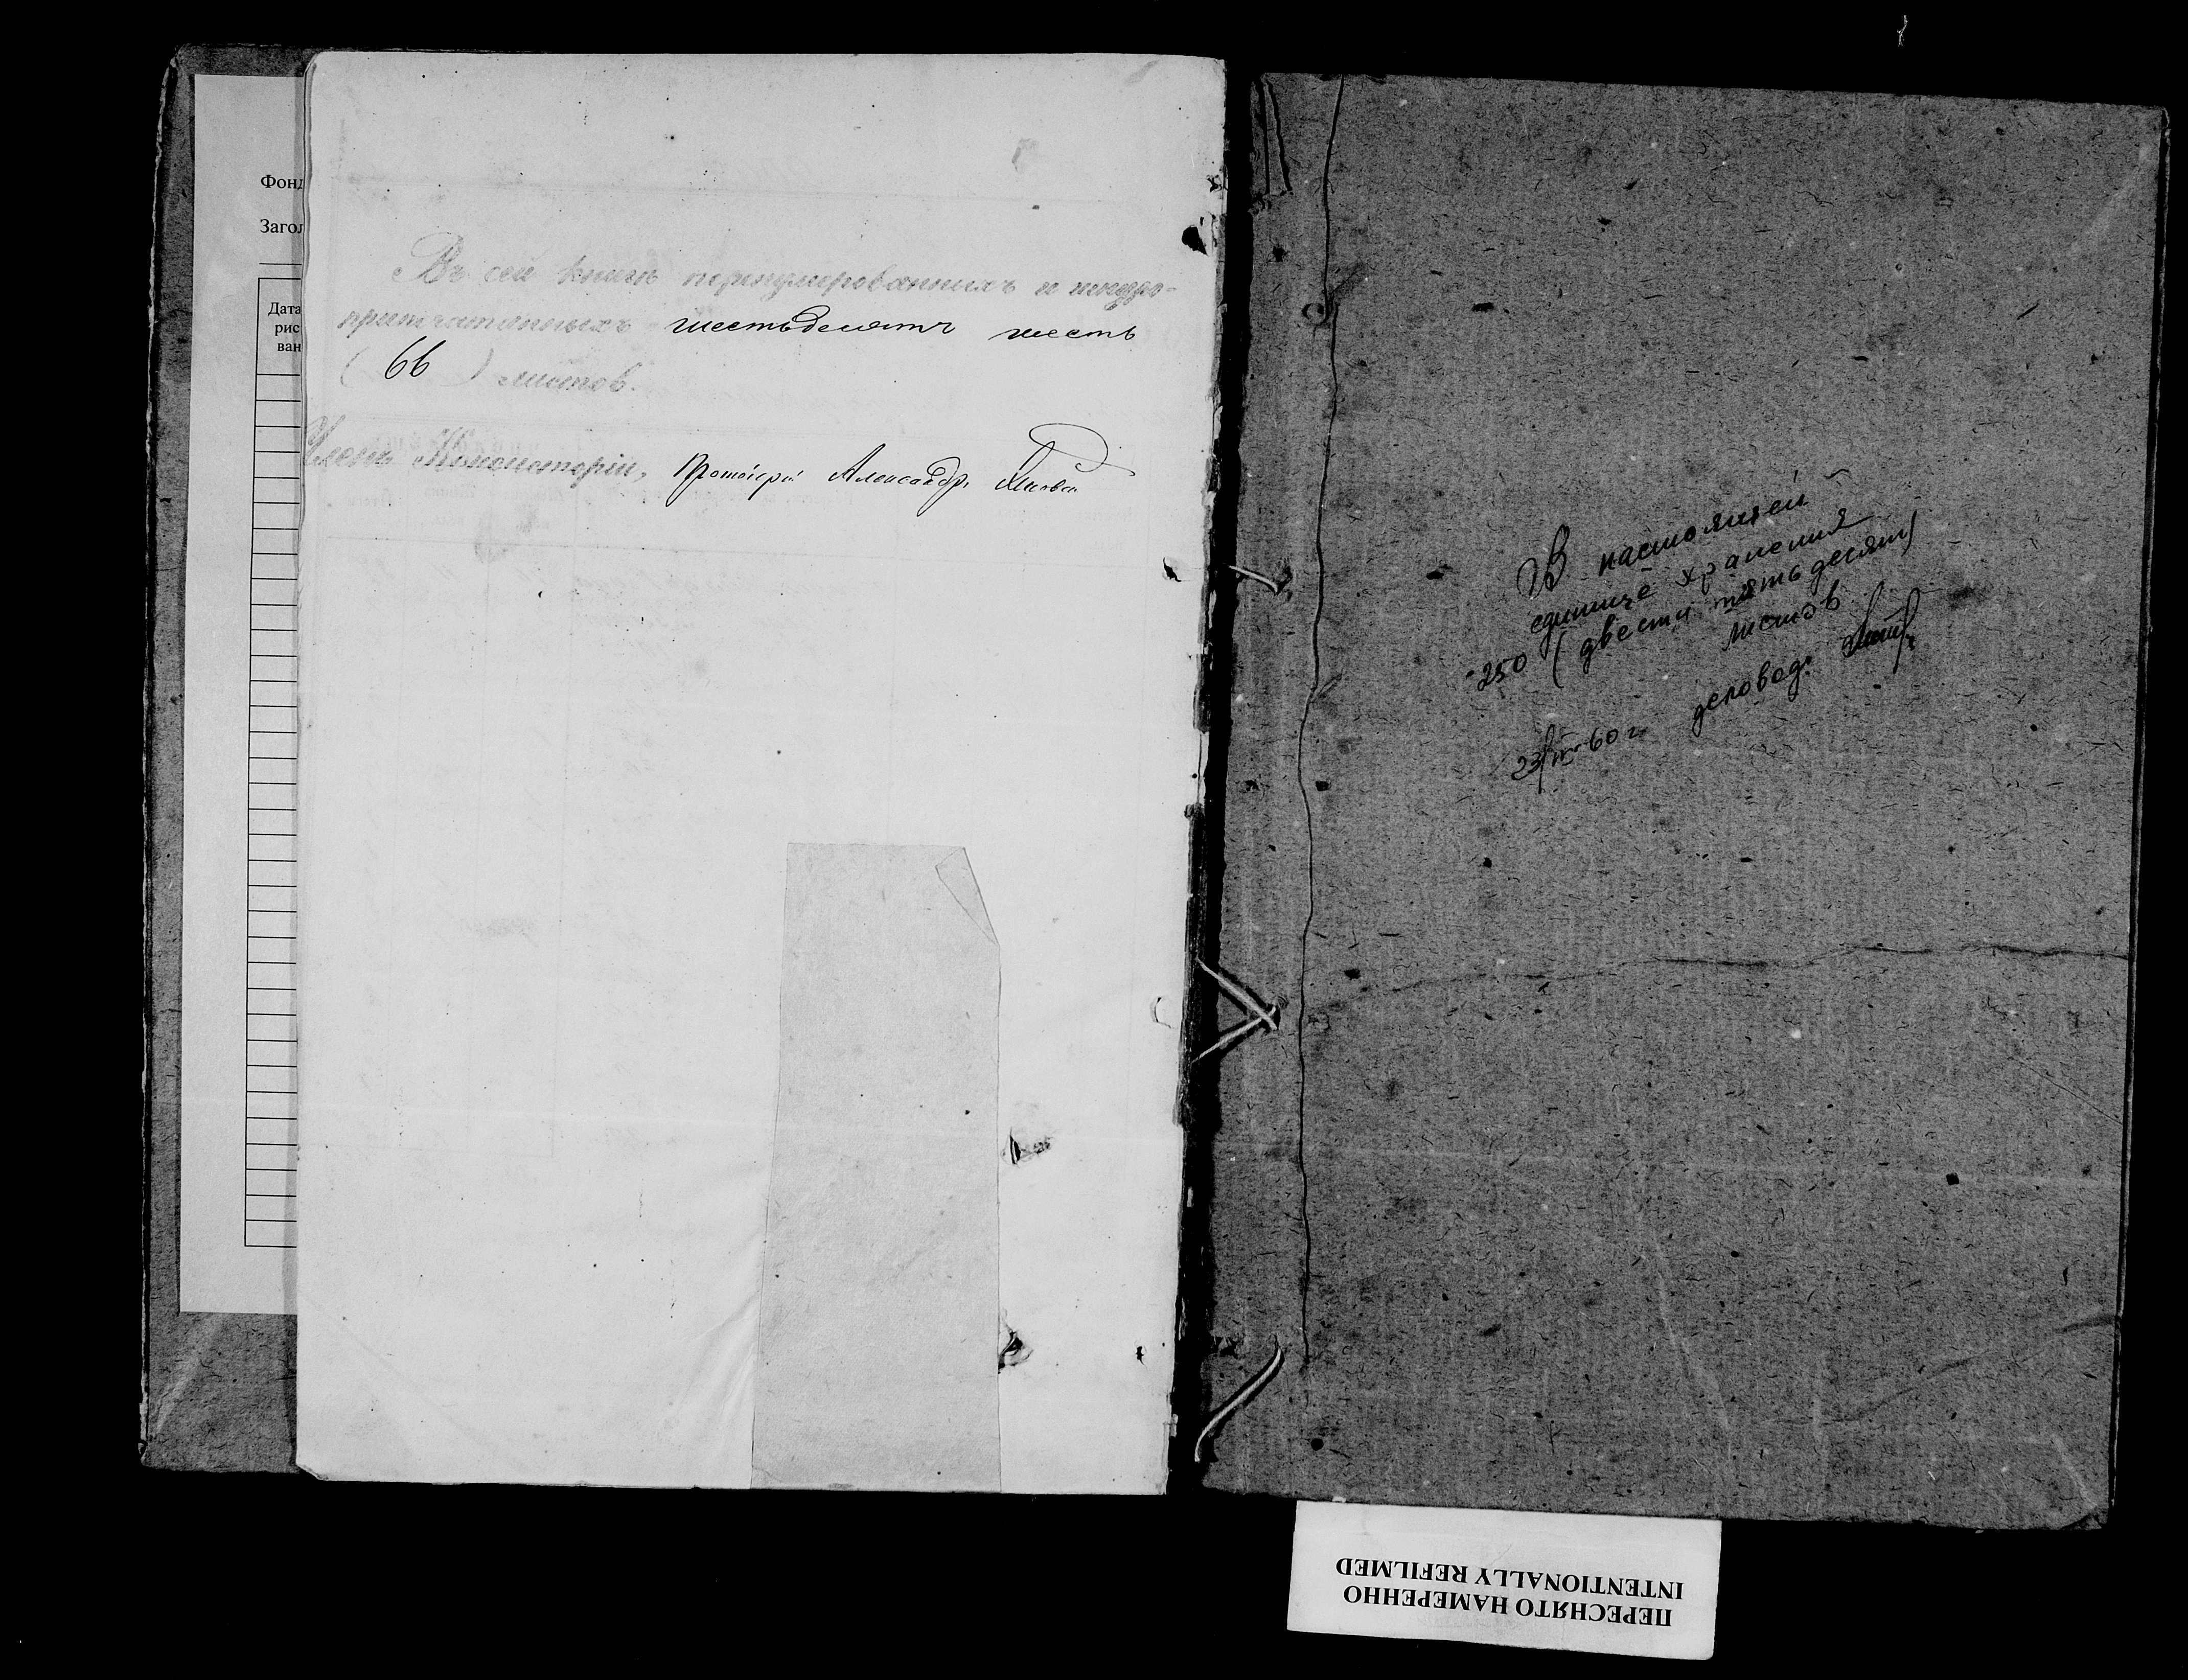 Фонд
Загол
Дата
рис
ван
Въ сей книгѣ перенумерованныхъ и шнуро-
припечатанныхъ шестьдесятъ шесть
(66) листов.
Членъ Консисторіи, Протоіерей Александръ
В настоящей
единице хранения
250 (двести пятьдесят)
листов
деловод.
23/IV-60 г.
ПЕРЕСНЯТО НАМЕРЕННО
INTENTIONALLY REFILMED